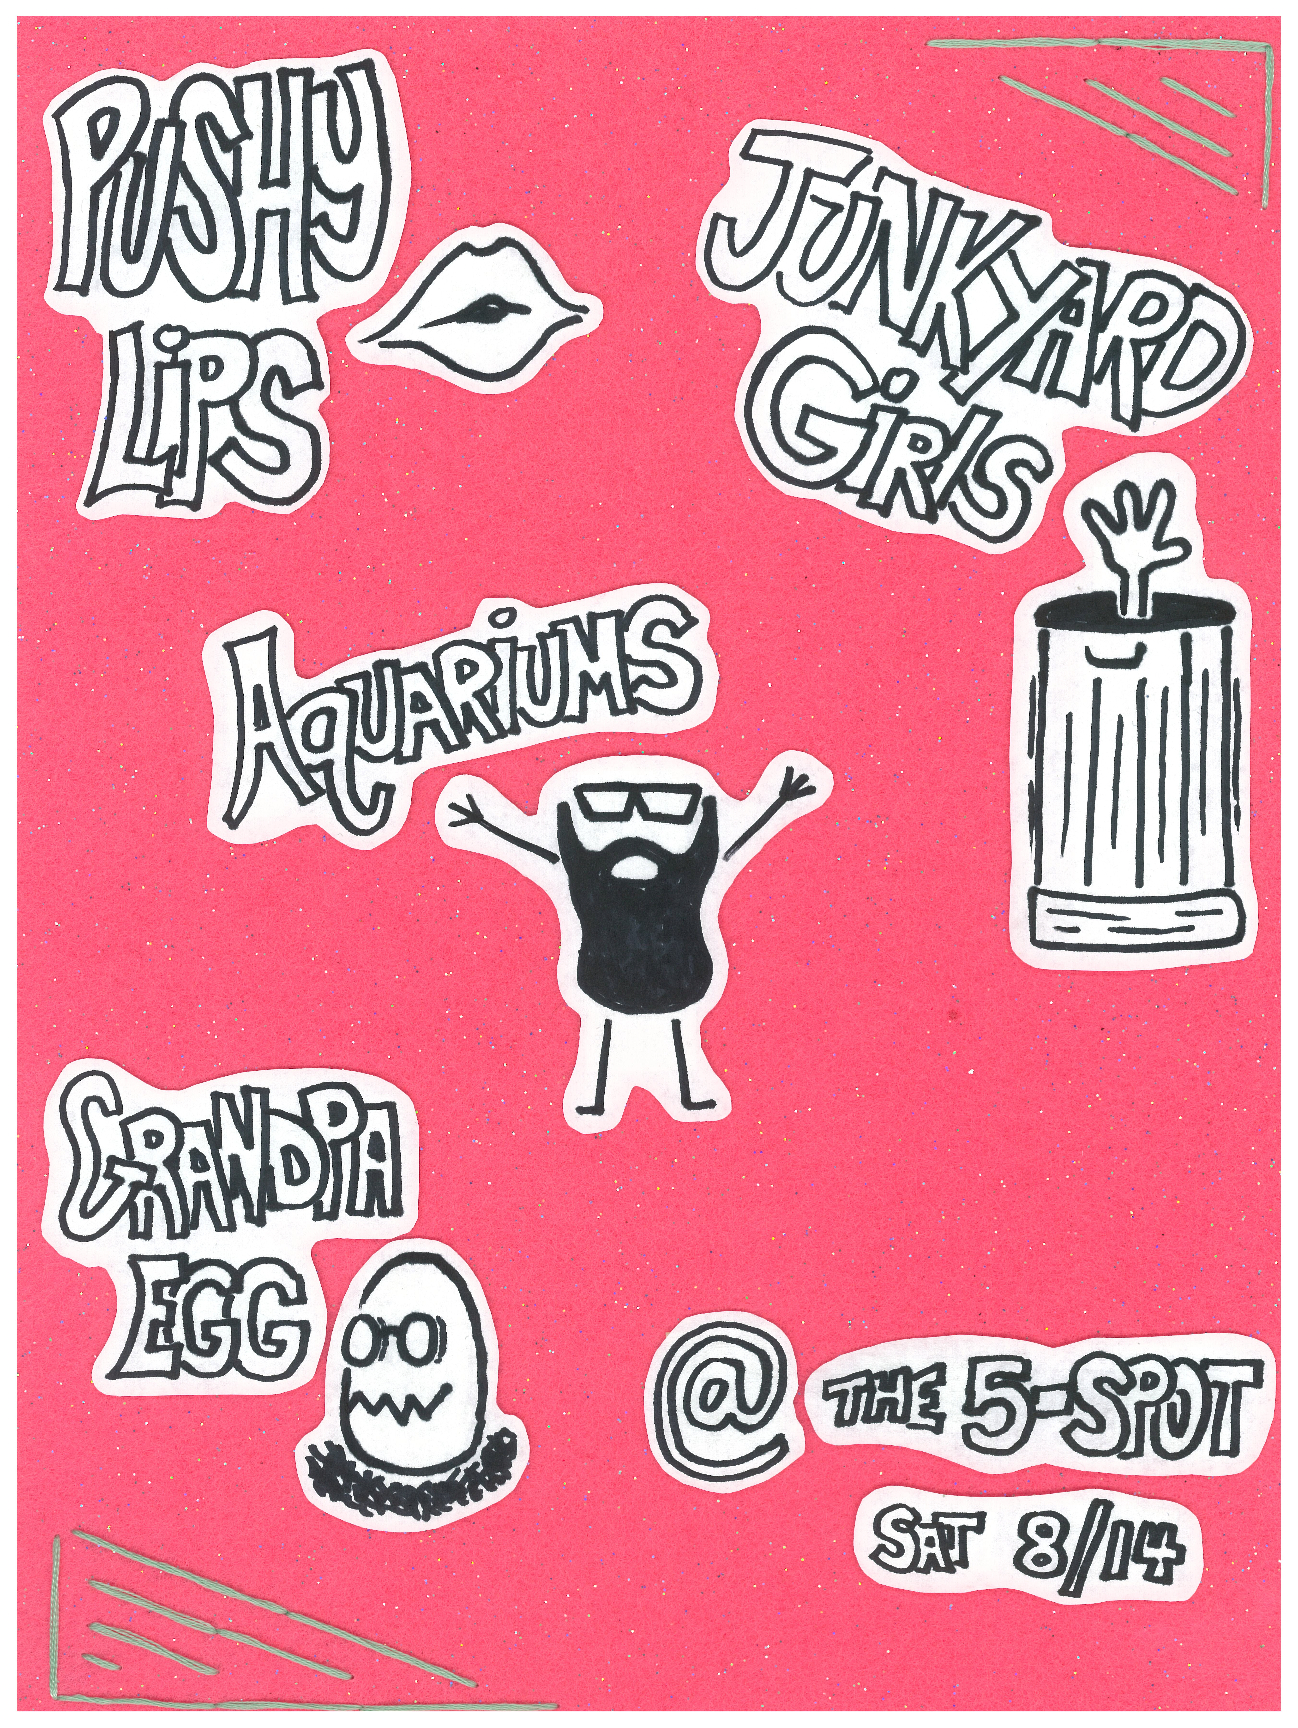 PUSHY
LiPS
JUNKYARD
GiRlS
AqUARiUMS
GRANDPA
EGG
@ THE 5-SPOT
SAT 8/14